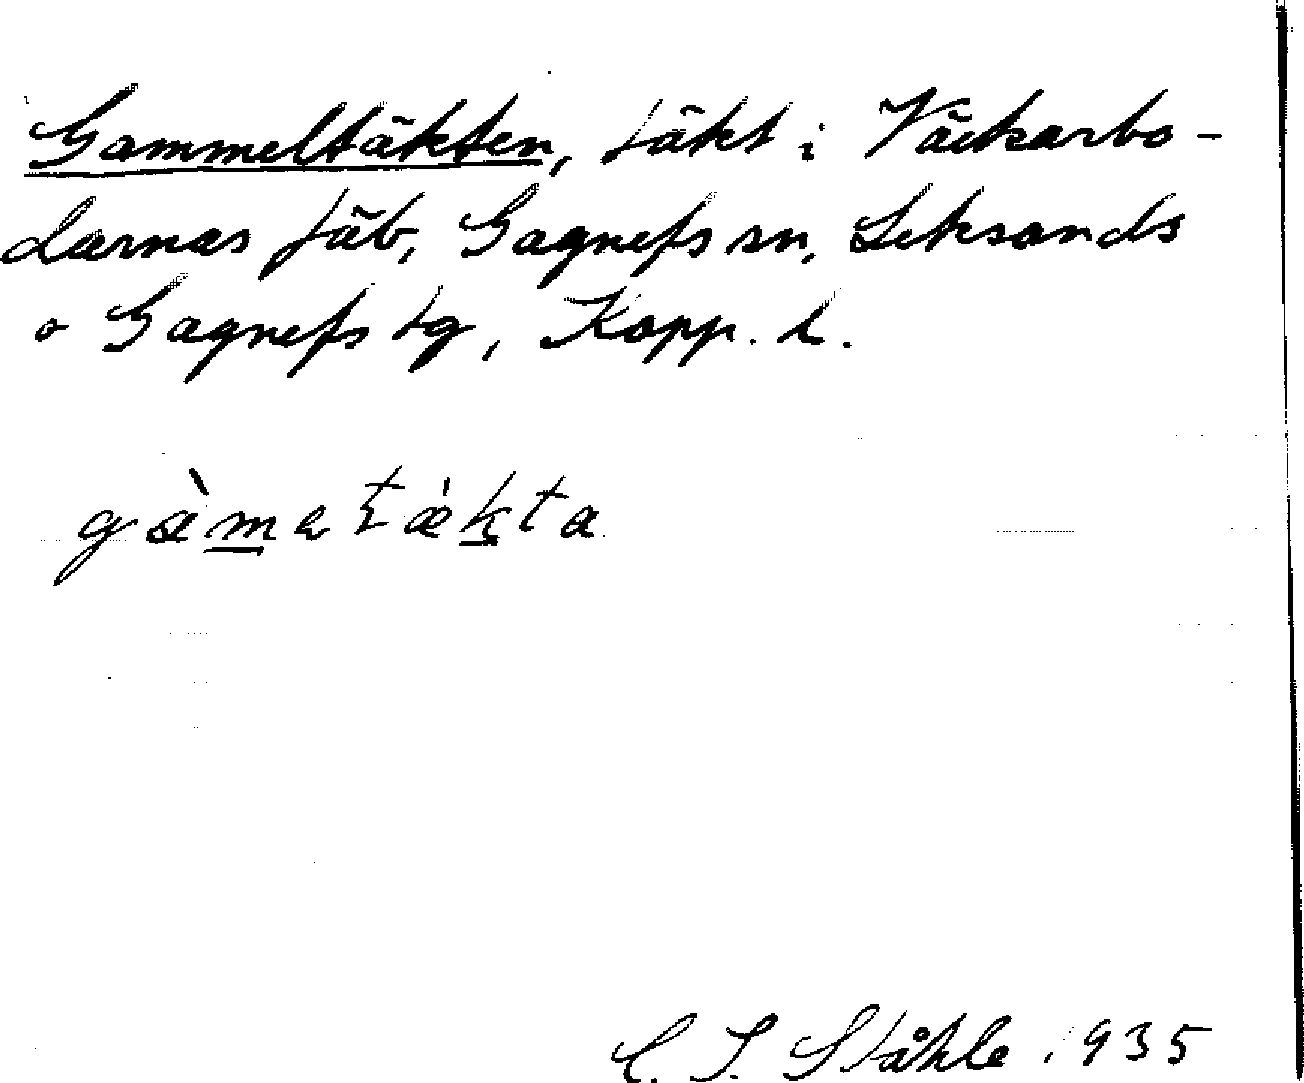 Gammeltäkten, täkt i Väckarbo-
darnas fäb, Gagnefs sn, Leksands
o Gagnefs tg, Kopp. l.
gàmetækta
C. I. Ståhle 1935